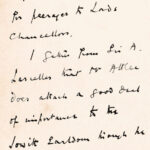 for peerages to Lords
Chancellors.
I gather from Sir A.
Lascelles that Mr Attlee
does attach a good deal
of importance to the
Jowitt Earldom though he